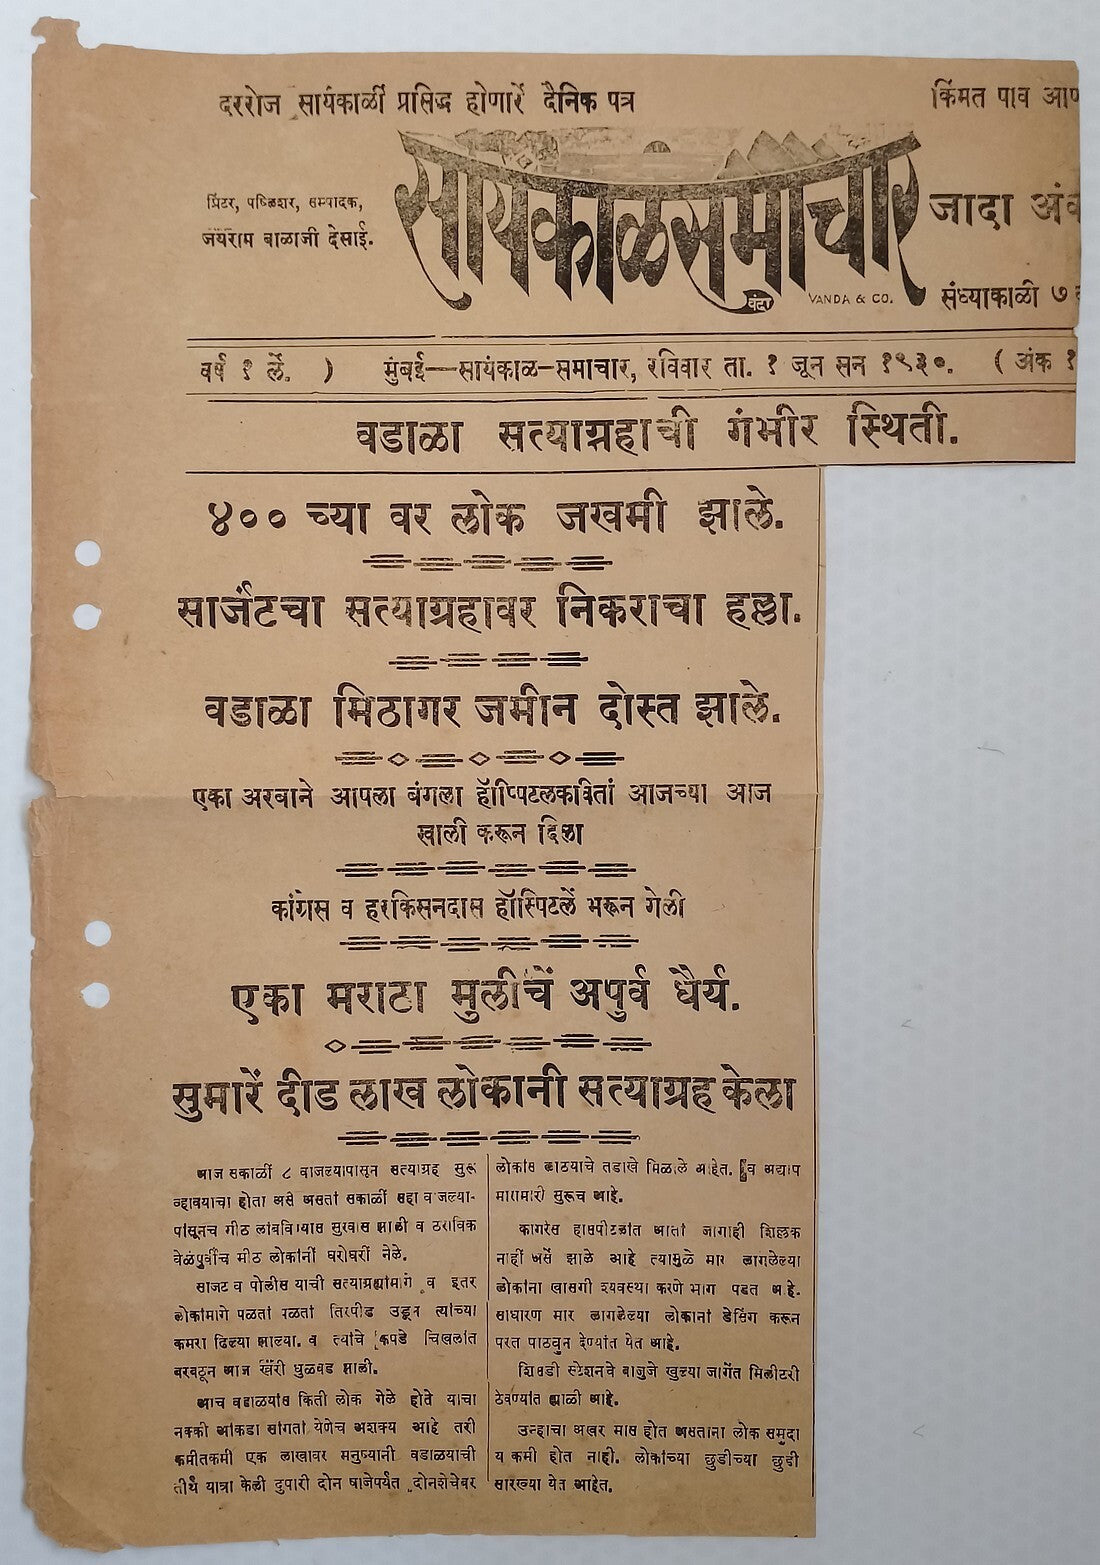 दररोज सायंकाळीं प्रसिद्ध होणारें दैनिक पत्र
किंमत पाव
प्रिंटर, पब्लिशर, सम्पादक,
जयराम बाळाजी देसाई.
सायंकाळसमाचार
वंदा
VANDA & CO.
जादा
संध्याकाळी ७
वर्ष १ लें. ) मुंबई—सायंकाळ—समाचार, रविवार ता. १ जून सन १९३०. ( अंक १
वडाळा सत्याग्रहाची गंभीर स्थिती.
४०० च्या वर लोक जखमी झाले.
सार्जंटचा सत्याग्रहावर निकराचा हल्ला.
वडाळा मिठागर जमीन दोस्त झाले.
एका अरबाने आपला बंगला हॉप्पिटलकरितां आजच्या आज
खाली करून दिला
कांग्रेस व हरकिसनदास हॉस्पिटलें भरून गेली
एका मराटा मुलीचें अपुर्व धैर्य.
सुमारें दीड लाख लोकानी सत्याग्रह केला
आज सकाळीं ८ वाजल्यापासून सत्याग्रह सुरू
व्हावयाचा होता असे असतां सकाळीं सहा वाजल्या-
पासूनच मीठ लांबविण्यास सुरवास झाली व ठराविक
वेळेपुर्वीच मीठ लोकांनीं घरोघरीं नेले.
साजट व पोलीस याची सत्याग्रह्यांमागे व इतर
लोकांमागे पळतां पळतां तिरपीड उडून त्यांच्या
कमरा ढिल्या झाल्या. व त्यांचे कपडे चिखलांत
बरबटून आज खरी धुळवड झाली.
आच वडाळ्यांस किती लोक गेले होते याचा
नक्की आंकडा सांगतां येणेच अशक्य आहे तरी
कमीतकमी एक लाखावर मनुष्यानी वडाळयाची
तीर्थ यात्रा केली दुपारी दोन वाजेपर्यंत दोनशेचेवर
लोकांस लाठयाचे तडाखे मिळाले आहेत. व अद्याप
मारामारी सुरूच आहे.
कागरेस हासपीटलांत आतां जागाही शिल्लक
नाहीं असें झाले आहे त्यामुळे मार लागलेल्या
लोकांना खासगी व्यवस्था करणे भाग पडत आहे.
साधारण मार लागलेल्या लोकांनां ड्रेसिंग करून
परत पाठवुन देण्यांत येत आहे.
शिवडी स्टेशनचे बाजुजे खुल्या जागेंत मिलीटरी
ठेवण्यांत झाली आहे.
उन्हाचा अखर मास होत असतांना लोक समुदा
य कमी होत नाही. लोकांच्या छुडीच्या छुडी
सारख्या येत आहेत.